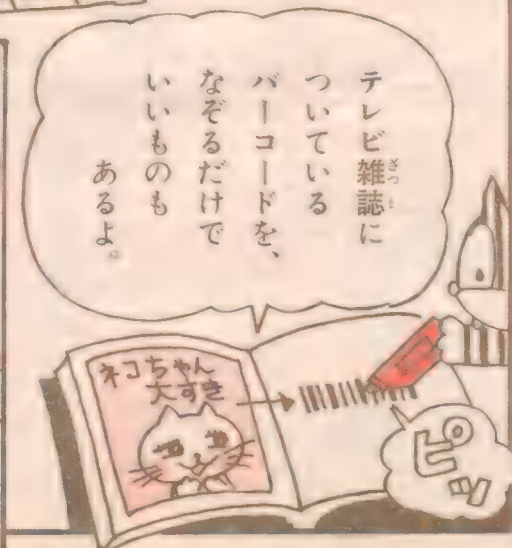 テレビ雑誌に
ついている
バーコードを、
なぞるだけで
いいものも
あるよ。
ネコちゃん
大すき
ピッ